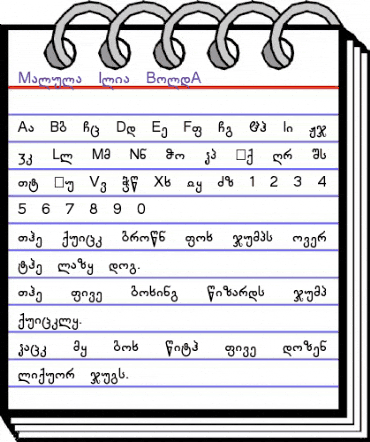 Mალულა Iლია BოლდA
Aა Bბ ჩც Dდ Eე Fფ ჩგ Iი ჟჯ
Lლ Mმ Nნ ქ ღრ შს
თტ უ Vვ ჭწ Xხ ძზ 1 2 3 4
5 6 7 8 9 0
თჰე ქუიცკ ბროწნ ფოხ ჯუმპს ოვერ
ტჰე ლაზყ დოგ.
თჰე ფივე ბოხინგ წიზარდს ჯუმპ
ქუიცკლყ.
პაცკ მყ ბოხ წიტჰ ფივე დოზენ
ლიქუორ ჯუგს.